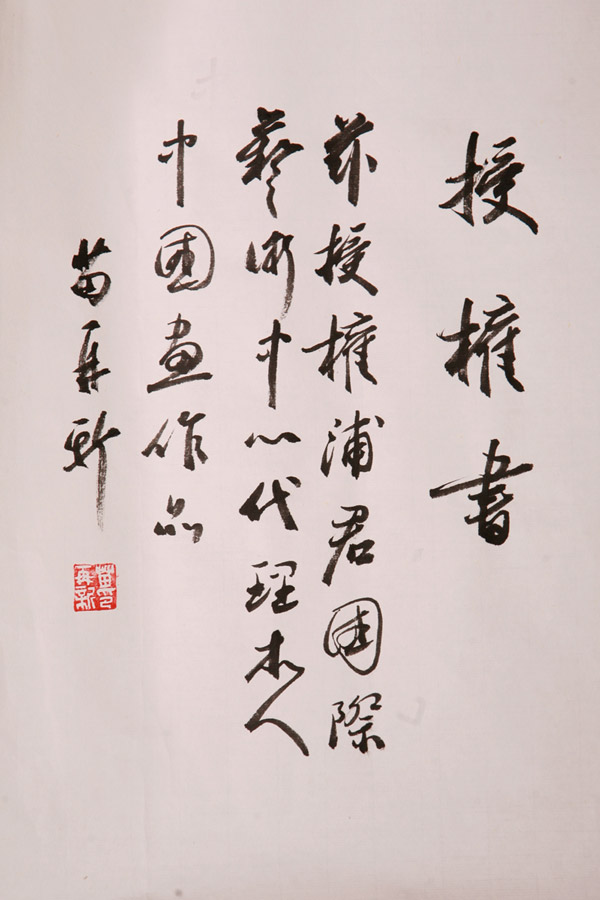 授權書
茲授權浦君國際
藝術中心代理本人
中國畫作品
苗再新
苗再新印